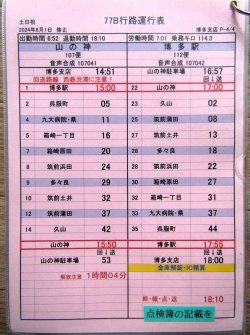 土日祝
77B行路運行表
2024年6月1日 修正
博多支店 P-4/4
出勤時間 6:52 退勤時間 18:10
労働時間 7.01 乗務キロ 114.3
山の神 博多駅
107便 22便
音声合成 107041 音声合成 107042
博多支店 14:51 山の神駐車場 16:57
回送経路 西鉄渋滞に注意! 回↓送
1 山の神 15:00 22 山の神 17:00
2 呉服町 05 23 久山 02
4 九大病院 11 25 筑前蒲田 08
5 箱崎一丁目 16 27 筑前土井 13
7 箱崎西田 20 28 多々良 18
8 筑前浜田 24 28 筑前浜田 22
9 多々良 29 31 箱崎西田 27
10 筑前土井 32 31 箱崎一丁目 32
12 筑前蒲田 37 33 九大病院 37
14 久山 42 35 呉服町 44
山の神 15:50 博多駅 17:55
山の神駐車場 53 博多支店 18:00
解放注意 1時間04分
金庫解錠・IC精算
卸・報・点・送 18:10
点検簿の記載を